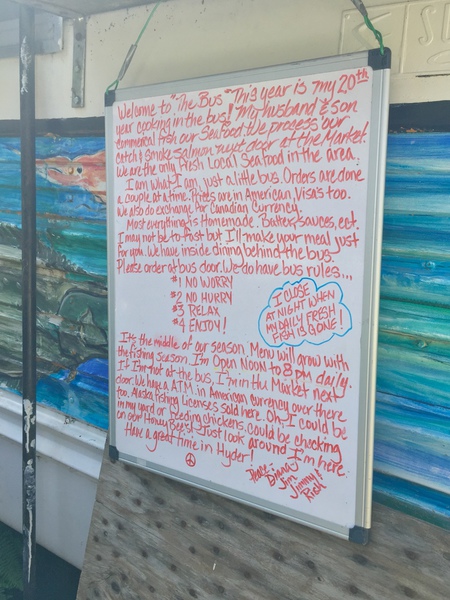 Welcome to "The Bus" This year is my 20th
year cooking in the bus! My husband & son
commerical fish our Seafood. We process our
catch & smoke salmon next door at the Market.
We are the only Fresh Local Seafood in the area.
I am what I am, just a little bus. Orders are done
a couple at a time. Prices are in American, Visa's too.
We also do exchange for Canadian Currency.
Most everything is Homemade. Batter, sauces, ect.
I may not be to fast but I'll make your meal just
for you. We have inside dining behind the bus.
Please order at bus door. We do have bus rules...
#1 NO WORRY
#2 NO HURRY
#3 RELAX
#4 ENJOY!
I CLOSE
AT NIGHT WHEN
MY DAILY FRESH
FISH IS GONE!
It's the middle of our season. Menu will grow with
the fishing season. I'm Open Noon to 8pm daily.
If I'm not at the bus, I'm in the Market next
door. We have a ATM in American currency over there
too. Alaska fishing Licenses sold here. Oh, I could be
in my yard or feeding chickens, could be checking
on our Honey Bee's! Just look around I'm here.
Have a great time in Hyder!
Peace -
Diana
Jim
Jimmy &
Rish